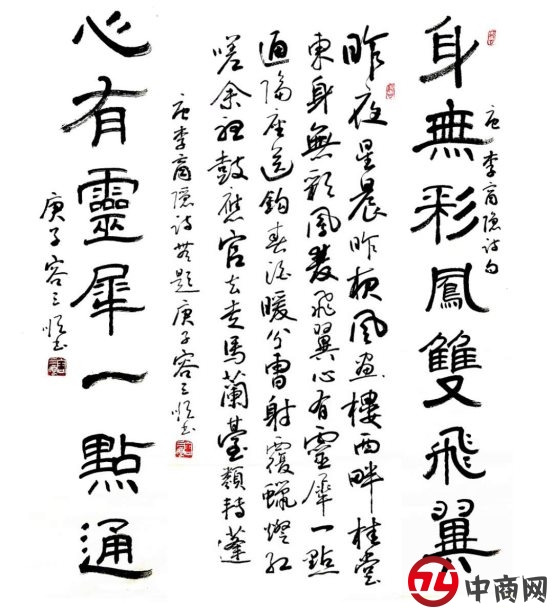 身無彩鳳雙飛翼
唐李商隐诗句
昨夜星晨昨夜風画樓西畔桂堂
東身無彩鳳雙飛翼心有靈犀一點
通隔座送鈎春酒暖分曹射覆蠟燈紅
嗟余聽鼓應官去走馬蘭臺類轉蓬
唐李商隐诗無题庚子容三书
心有靈犀一點通
庚子容三书
中商网